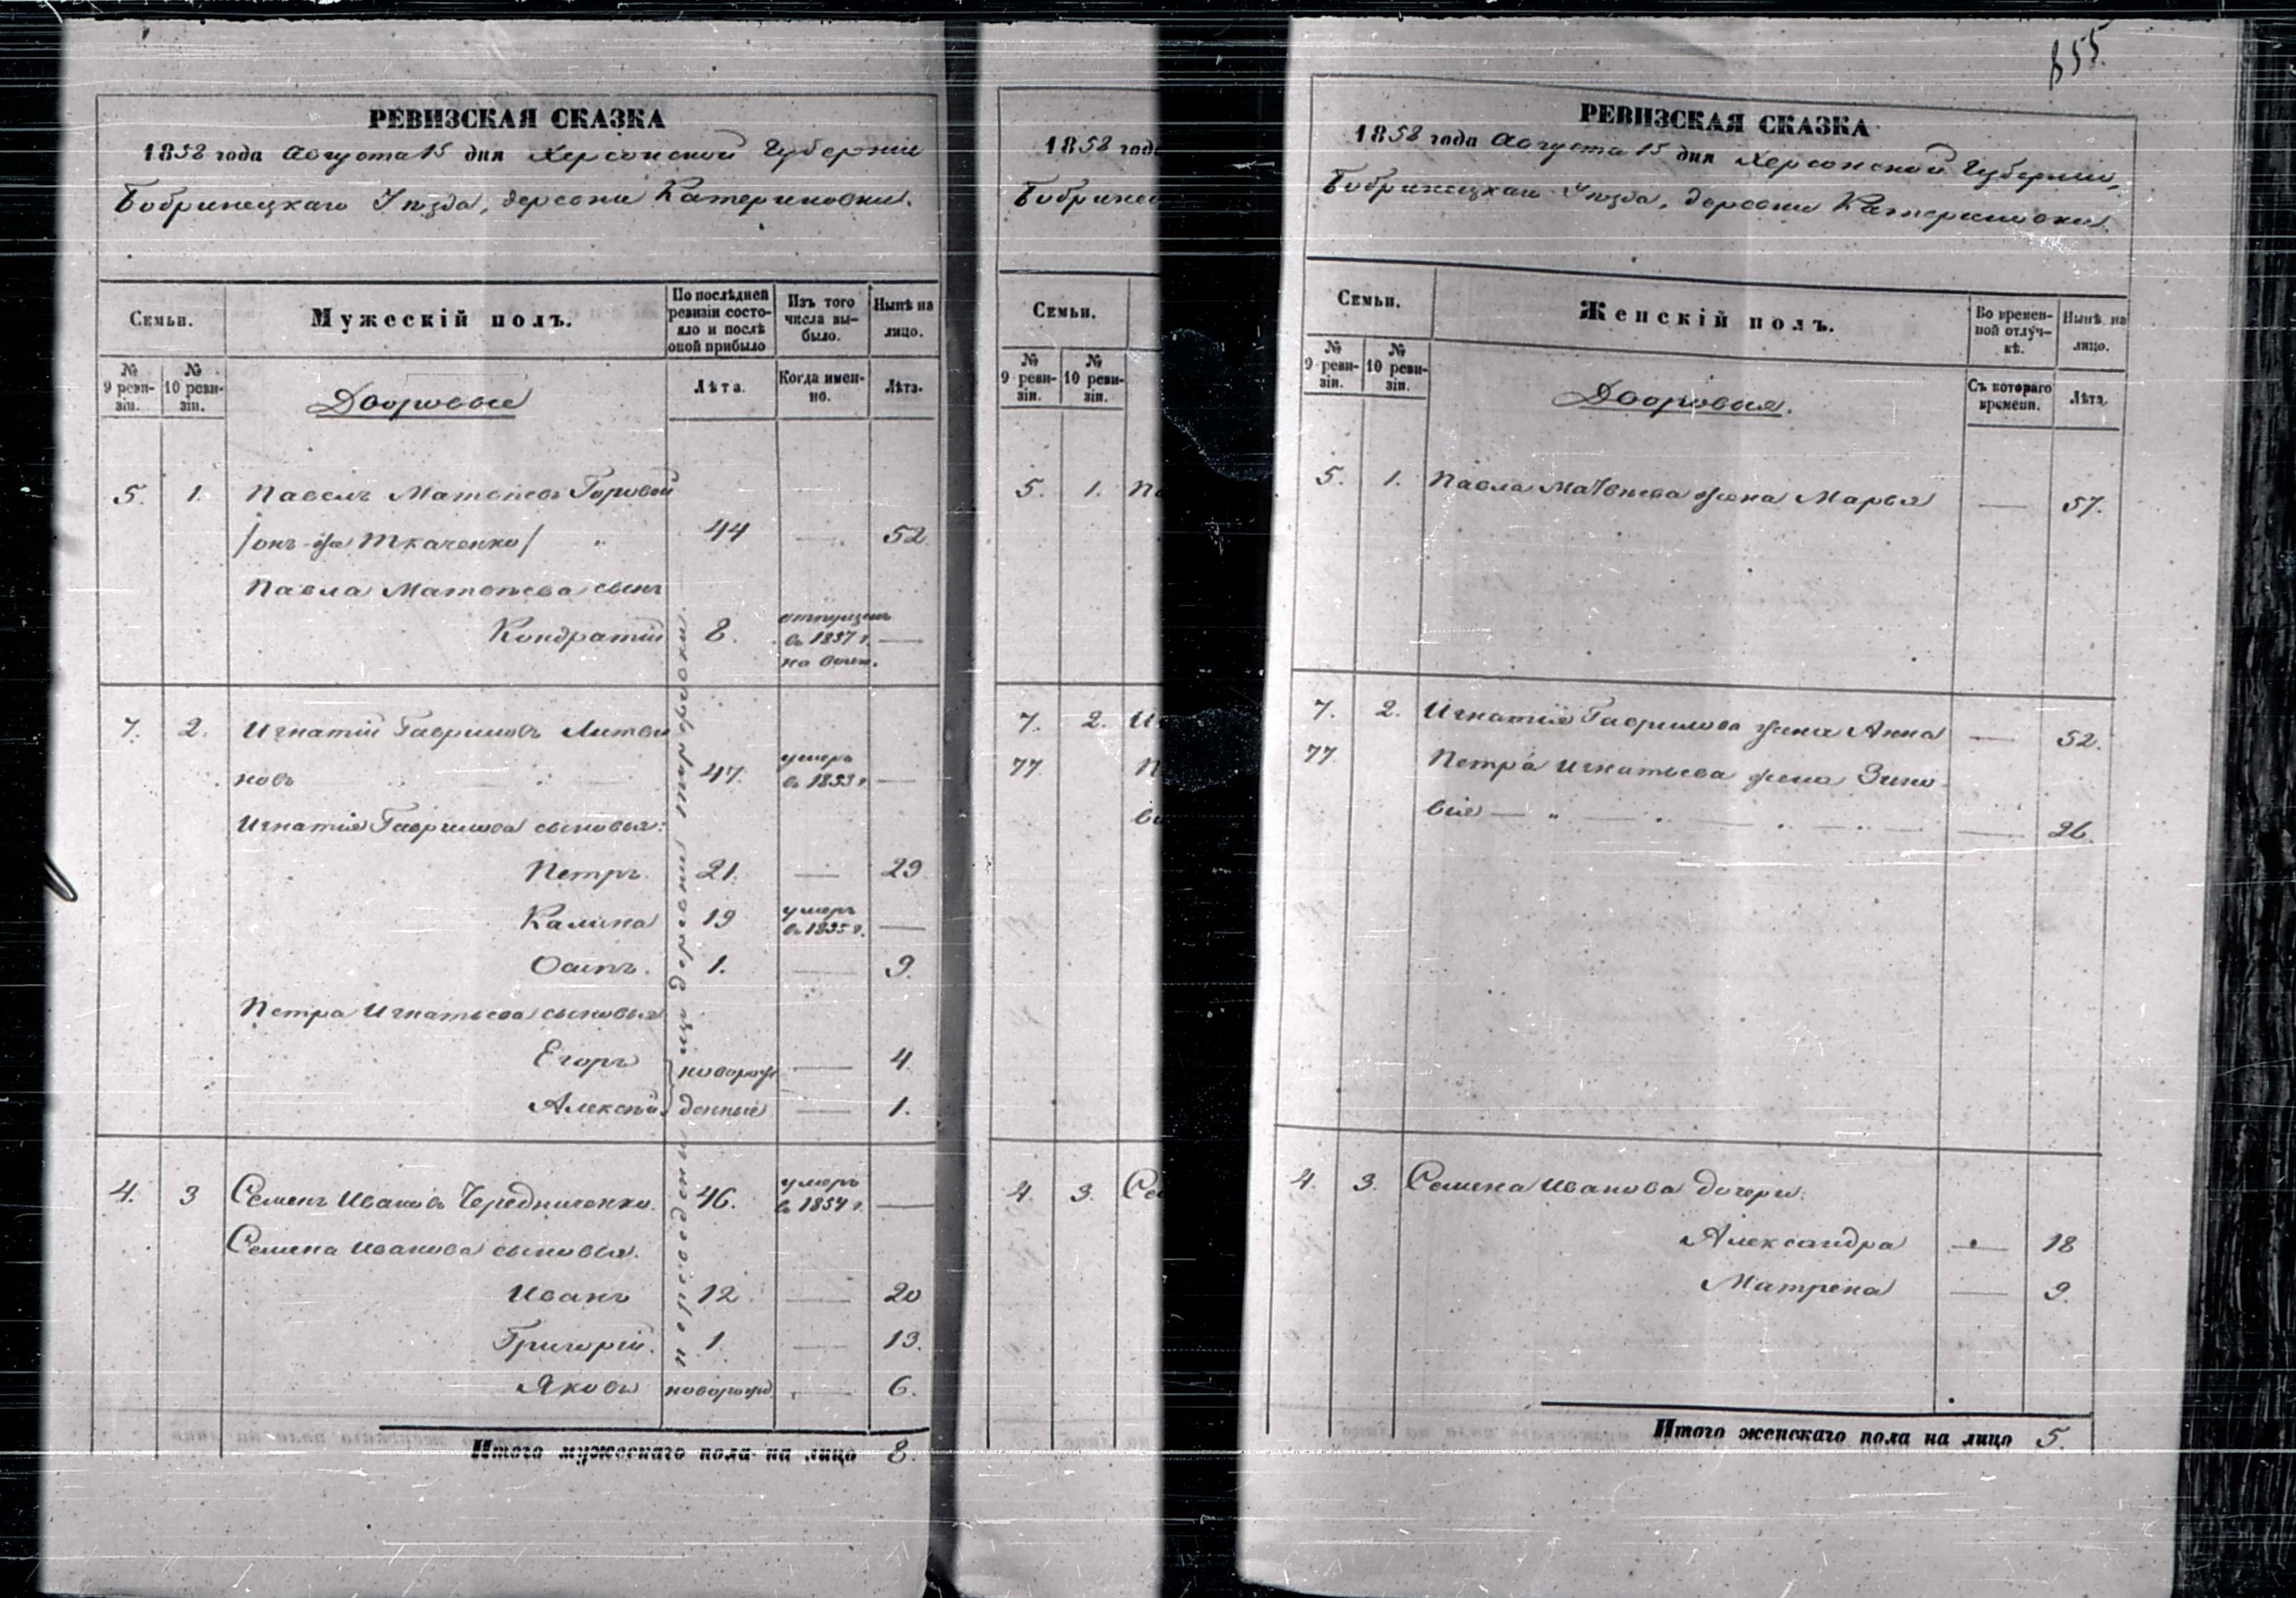 РЕВИЗСКАЯ СКАЗКА
1858 года Августа 15 дня Херсонской Губернии
Бобринецкаго Уѣзда, деревни Катериновки.
Семьи.
Мужескій полъ.
По послѣдней ревизіи состо-
яло и послѣ
оной прибыло
Изъ того
числа вы-
было.
Нынѣ на
лицо.
№
9 реви-
зіи.
№
10 реви-
зіи.
Дворовые
Лѣта.
Когда имен-
но.
Лѣта.
5. 1. Павелъ Матвѣевъ Горовой
/онъ-же Ткаченко/ " 44 — 52.
Павла Матвѣева сынъ
Кондратій 8. отпущенъ
въ 1857 г. —
на волю.
7. 2. Игнатій Гавриловъ Литви
новъ 47. умеръ
въ 1853 г. —
Игнатія Гаврилова сыновья:
Петръ. 21. — 29.
Калина 19 умеръ
въ 1855 г. —
Осипъ. 1. — 9.
Петра Игнатьева сыновья
Егоръ новорож — 4
Алексѣй. денные — 1.
4. 3 Семенъ Ивановъ Чередниченко. 46. умеръ
въ 1854 г. —
Семена Иванова сыновья.
Иванъ 12. — 20
Григорій. 1. — 13.
Яковъ новорожд. — 6.
переведены изъ деревни
Итого мужескаго пола на лицо 8.
1858 года
Бобринец
Семьи.
№
9 реви-
зіи.
№
10 реви-
зіи.
5. 1. Па
7. 2. Иг
77 П
ві
4. 3. Се
855.
РЕВИЗСКАЯ СКАЗКА
1858 года Августа 15 дня Херсонской Губерніи,
Бобринецкаго Уѣзда, деревни Катериновки.
Семьи.
Женскій полъ.
Во времен-
ной отлуч-
кѣ.
Нынѣ на
лицо.
№
9 реви-
зіи.
№
10 реви-
зіи.
Дворовыя.
Съ котораго
времени.
Лѣта.
5. 1. Павла Матвѣева жена Марья — 57.
7. 2. Игнатія Гаврилова жена Анна — 52.
77 Петра Игнатьева жена Зино
вія — " — 26.
4. 3. Семена Иванова дочери:
Александра — 18
Матрена — 9.
Итого женскаго пола на лицо 5.